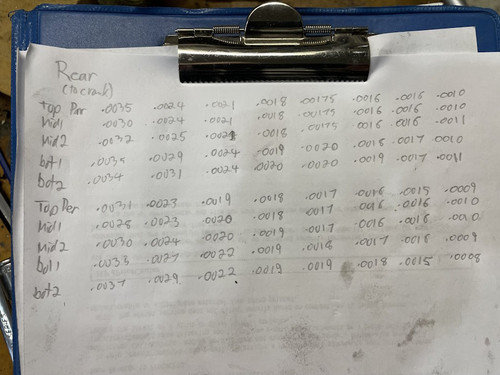 Rear
(to crank)
Top Per .0035 .0024 .0021 .0018 .00175 .0016 .0016 .0010
Mid1 .0030 .0024 .0021 .0018 .00175 .0016 .0016 .0010
Mid2 .0032 .0025 .0021 .0018 .00175 .0016 .0016 .0011
bot1 .0035 .0029 .0024 .0019 .0020 .0018 .0017 .0010
bot2 .0034 .0031 .0024 .0020 .0020 .0019 .0017 .0011
Top Per .0031 .0023 .0019 .0018 .0017 .0016 .0015 .0009
Mid1 .0028 .0023 .0020 .0018 .0017 .0016 .0016 .0010
Mid2 .0030 .0024 .0020 .0019 .0017 .0016 .0016 .0010
bot1 .0035 .0027 .0022 .0019 .0018 .0017 .0016 .0009
bot2 .0037 .0029 .0022 .0019 .0019 .0018 .0015 .0008